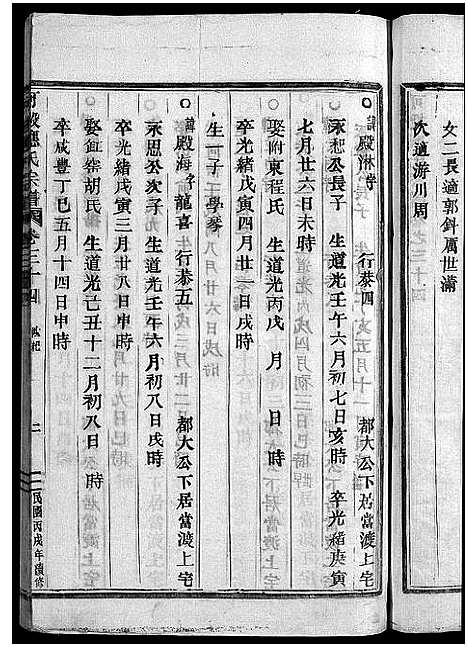 女二長適郭鈄厲世滿
次適游川周
諱殿淋字 行恭四 都大公下居當渡上宅
永起公長子 生道光壬午六月初七日亥時 卒光緒庚寅
七月廿六日未時
娶附東程氏 生道光丙戌 月 日 時
卒光緒戊寅四月廿二日戌時
生一子 學琴
諱殿海字龍喜 行恭五 都大公下居當渡上宅
永思公次子 生道光壬午六月初八日戌時
卒光緒戊寅三月廿八日申時
娶 胡氏 生道光己丑十二月初八日 時
卒咸豐丁巳五月十四日申時
應氏宗譜 卷三十四 二 民國丙戌年續修